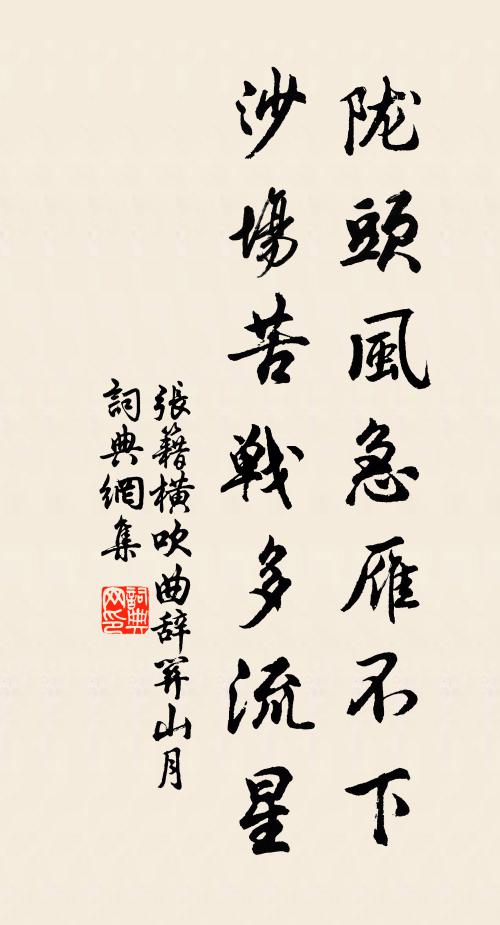 陇頭風急雁不下
沙場苦戰多流星
張籍橫吹曲辞関山月
詞典網集
詞典网印